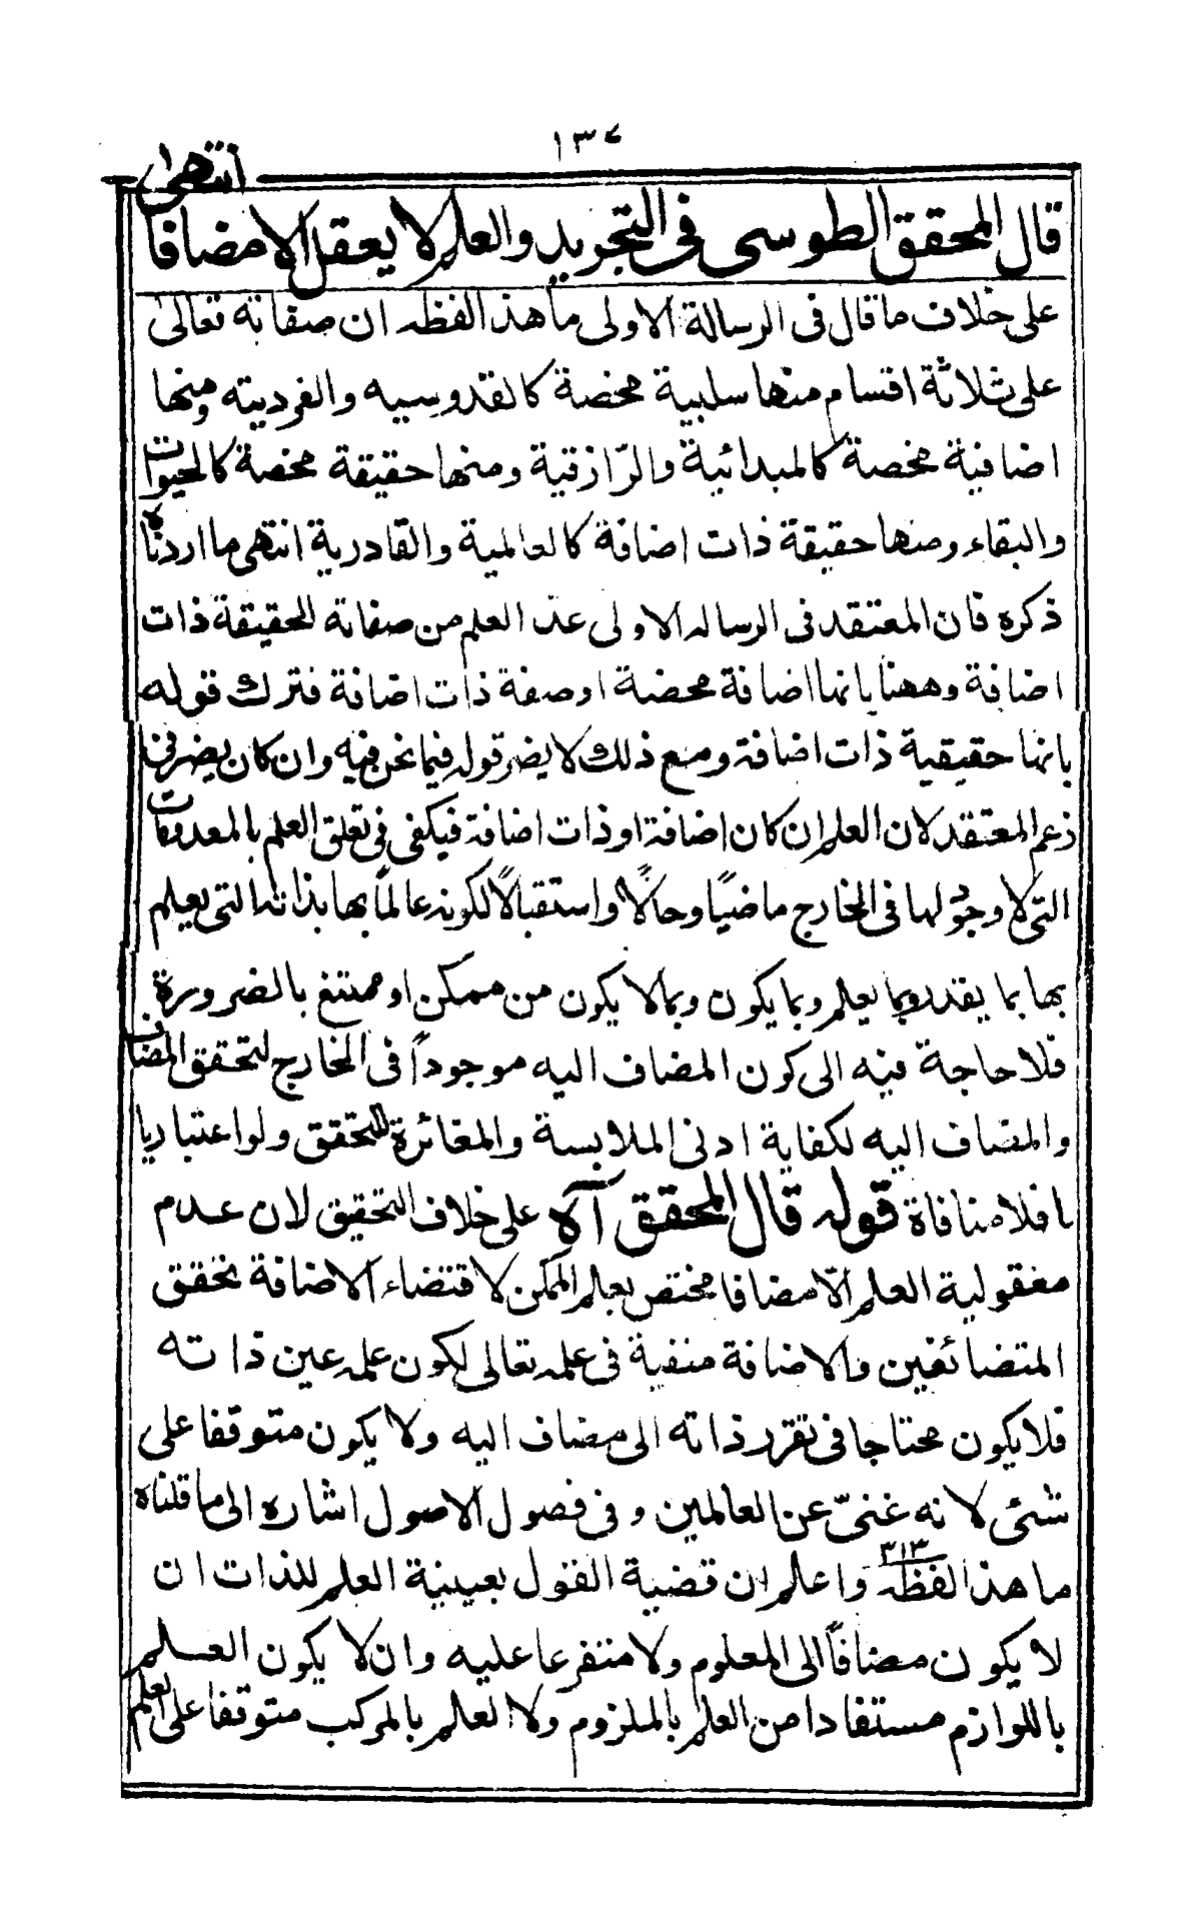 ١٣٧
قال المحقق الطوسى فى التجريد والعلم لا يعقل الا مضافا انتهى
على خلاف ما قال فى الرسالة الاولى ما هذا لفظه ان صفاته تعالى
على ثلاثة اقسام منها سلبية محضة كالقدوسيه والفرديته ومنها
اضافية محضة كالمبدائية والرّازقية ومنها حقيقة محضة كالحيوات
والبقاء ومنها حقيقة ذات اضافة كالعالمية والقادرية انتهى ما اردناه
ذكره فان المعتقد فى الرساله الاولى عدّ العلم من صفاته الحقيقة ذات
اضافة وههنا بانها اضافة محضة او صفة ذات اضافة فترك قوله
بانها حقيقية ذات اضافة ومع ذلك لا يضر قوله فيما نحن فيه وان كان يضر فى
زعم المعتقد لان العلم ان كان اضافة او ذات اضافة فيكفى فى تعلق العلم بالمعدومات
التى لا وجود لها فى الخارج ماضيًا وحالًا واستقبالًا لكونه عالمًا بها بذاته التى يعلم
بها بما يقدر وبما يعلم وبما يكون وبما لا يكون من ممكن او ممتنع بالضرورة
فلا حاجة فيه الى كون المضاف اليه موجوداً فى الخارج لتحقق المضاف
والمضاف اليه لكفاية ادنى الملابسة والمغائرة للتحقق ولو اعتباريا
با فلا منافاة قوله قال المحقق آه على خلاف التحقيق لان عدم
معقولية العلم الّا مضافا مختص بعلم الممكن لاقتضاء الاضافة تحقق
المتضائفين والاضافة منفية فى علمه تعالى لكون علمه عين ذاته
فلا يكون محتاجا فى تقرر ذاته الى مضاف اليه ولا يكون متوقفا على
شئى لانه غنىّ عن العالمين وفى فصول الاصول اشاره الى ما قلناه
ما هذا لفظه ٣١٣ واعلم ان قضية القول بعينية العلم للذات ان
لا يكون مضافاً الى المعلوم ولا متفرعا عليه وان لا يكون العلم
باللوازم مستفادا من العلم بالملزوم ولا العلم بالمركب متوقفا على العلم